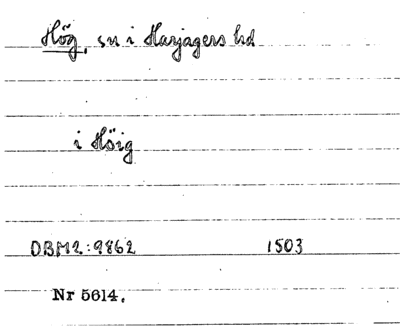 Hög, sn i Harjagers hd
i Höig
DBM2:9862 1503
Nr 5614.